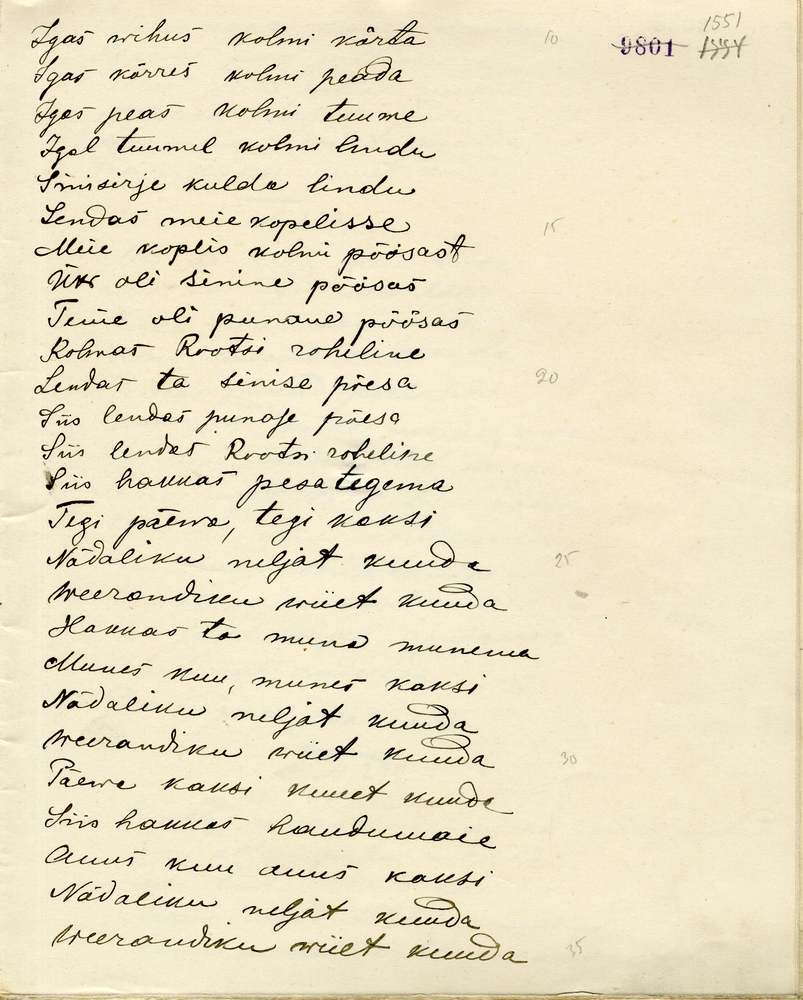 1551
9801 1554
Igas wihus kolmi kõrta 10
Igas kõrres kolmi peada
Igas peas kolmi tuume
Igal tuumel kolmi lindu
Sinisirje kulda lindu
Lendas meie kopelisse 15
Meie koplis kolmi põõsast
Üks oli sinine põõsas
Teine oli punane põõsas
Kolmas Rootsi roheline
Lendas ta sinise põesa 20
Siis lendas punase põesa
Siis lendas Rootsi roheline
Siis hakkas pesa tegema
Tegi päewa, tegi kaksi
Nädaliku neljät kuuda 25
Weerandiku wiiet kuuda
Hakkas ta muna munema
Munes kuu, munes kaksi
Nädaliku neljät kuuda
Weerandiku wiiet kuuda 30
Päewa kaksi kuuet kuuda
Siis hakkas haudumaie
Auus kuu auus kaksi
Nädaliku neljät kuuda
Weerandiku wiiet kuuda 35